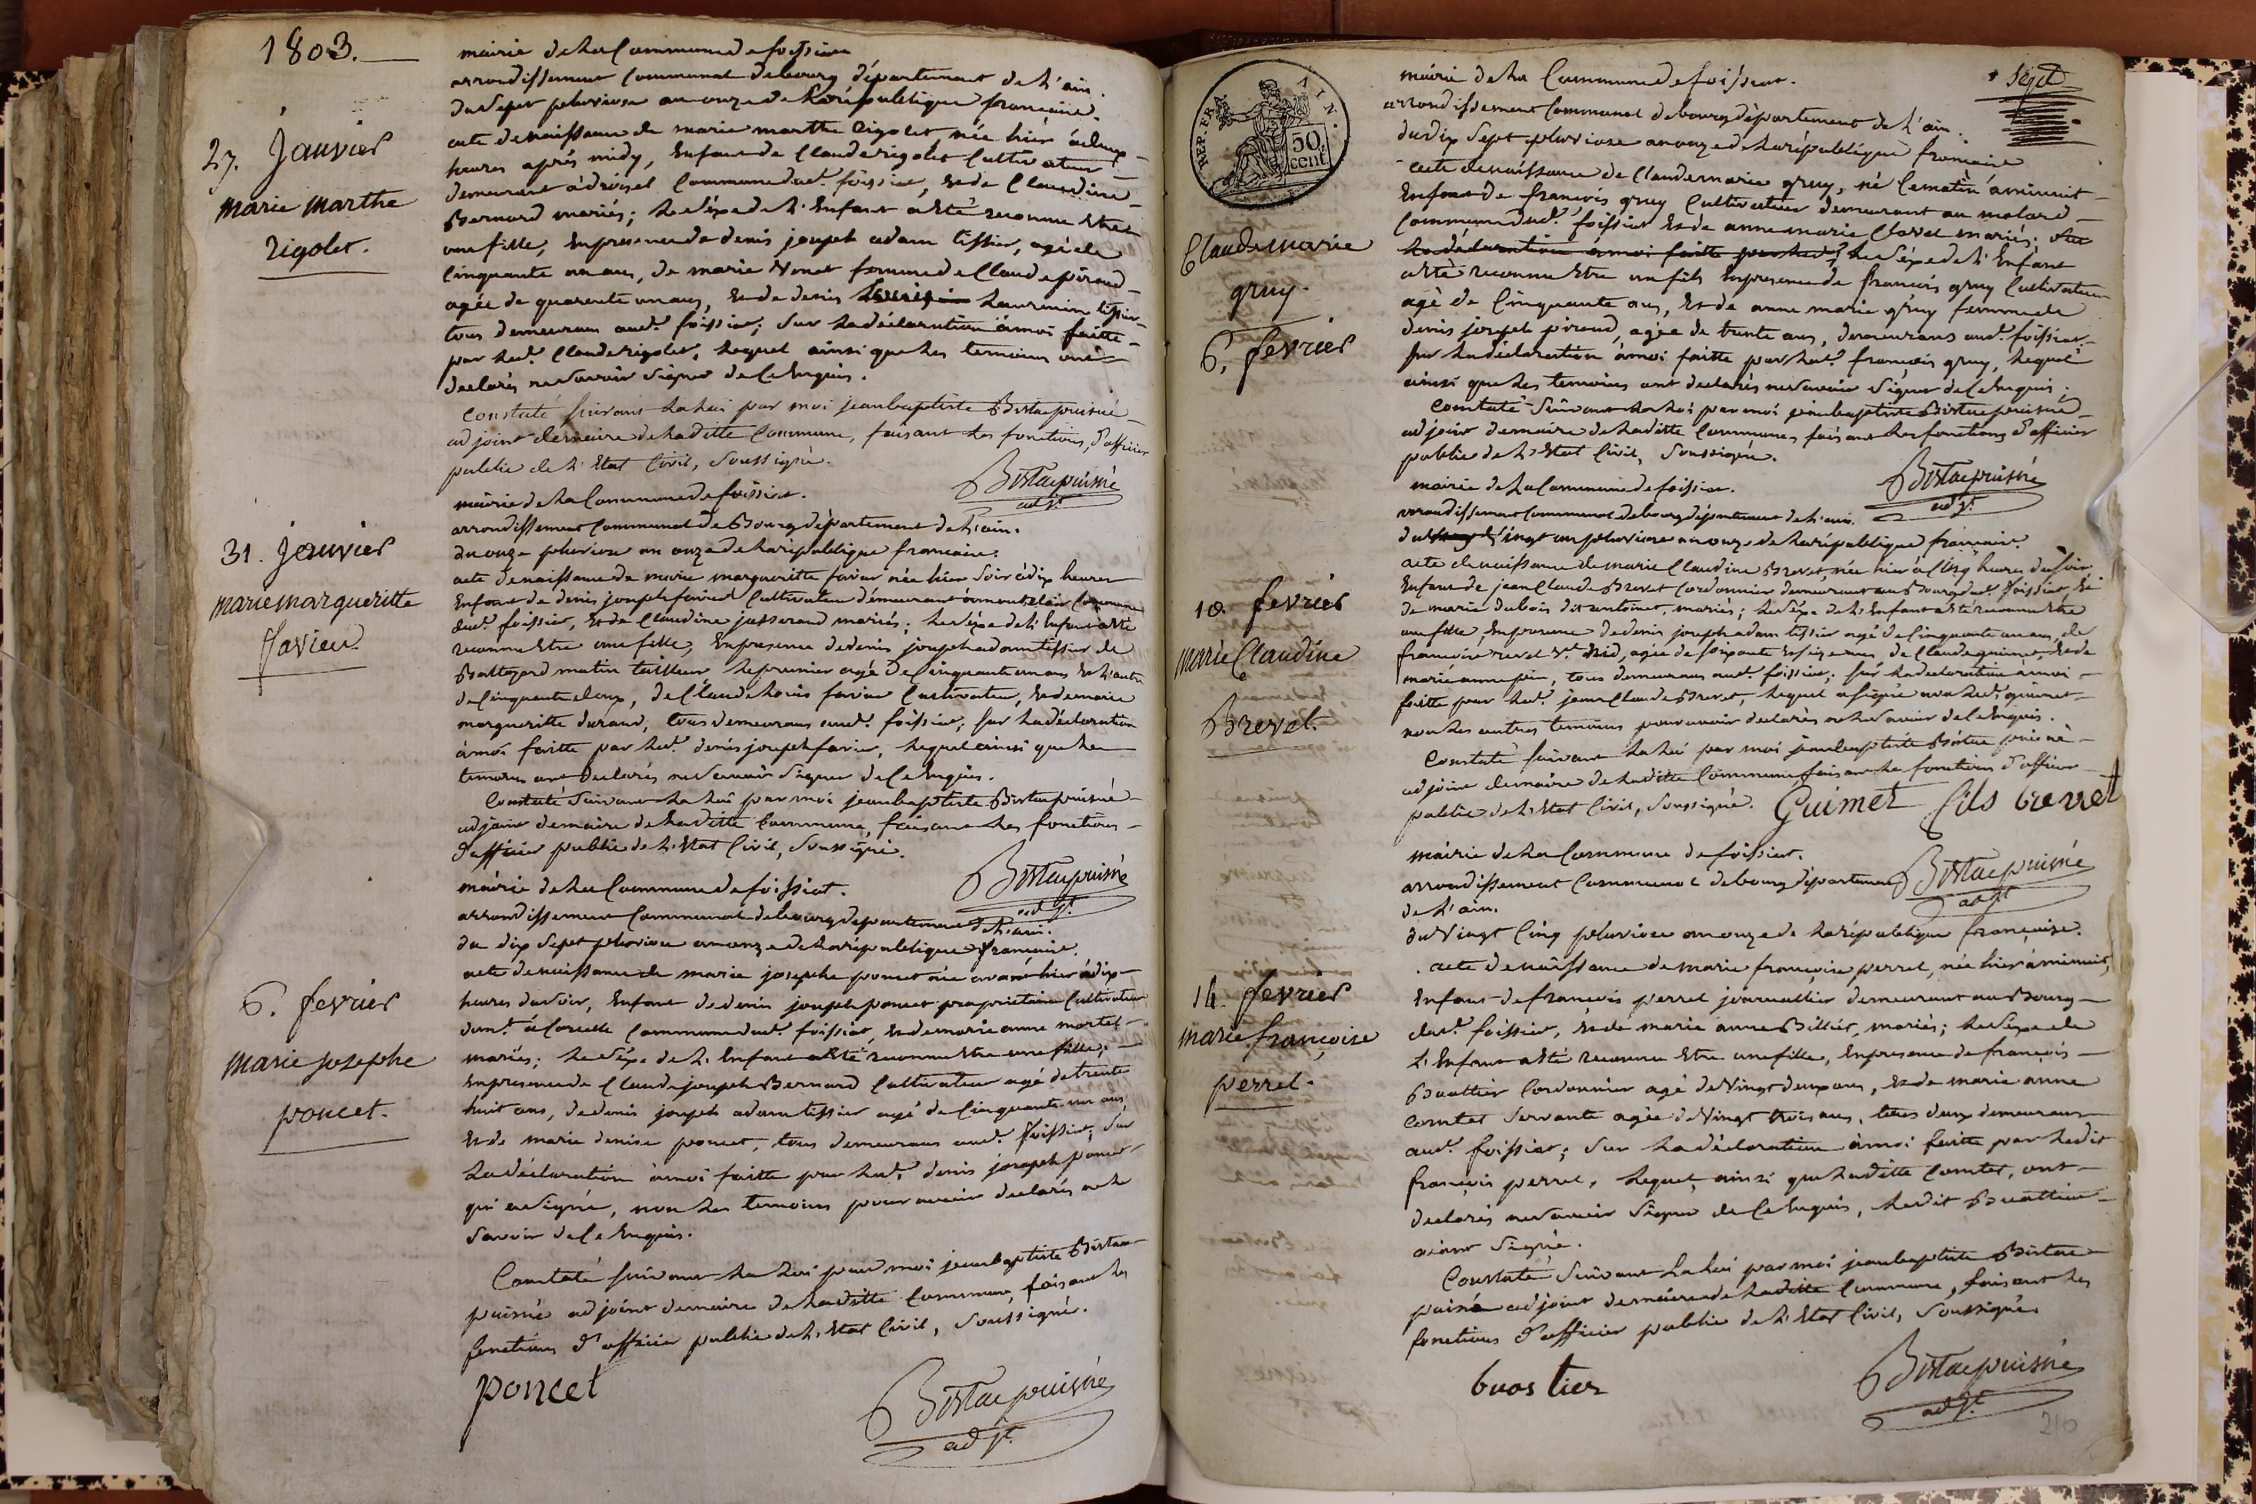 1803.
mairie de la Commune de foissiat
arrondissement Communal de bourg département de l'ain.
du sept pluviose an onze de la république francaise.
acte de naissance de marie marthe rigolet, née hier à deux
heures après midy, Enfant de Claude rigolet Cultivateur
demeurant à Commune dud.t foissiat, et de Claudine
Bernard mariés; le séxe de l'Enfant a été reconnu etre
une fille, En présence de denis joseph adam tissier, agé de
Cinquante un ans, de marie femme de Claude piroud
agée de quarente un ans, et de denis laurent tissier
tous demeurans aud.t foissiat; sur la déclaration à moi faitte
par led.t Claude rigolet, lequel ainsi que les temoins ont
declarés ne savoir signer de ce Enquis.
Constaté suivant la loi par moi jean baptiste Bistac puisné
adjoint de maire de la ditte Commune, faisant les fonctions, d'officier
public de l'Etat Civil, soussigné.
Bistac puisné
adj.t
27. janvier
marie marthe
rigolet.
mairie de la Commune de foissiat.
arrondissement Communal de Bourg département de l'ain.
du onze pluviose an onze de la république francaise.
acte de naissance de marie margueritte favier née hier soir à dix heures
Enfant de denis joseph favier Cultivateur demeurant à Commune
dud.t foissiat, et de Claudine josserand mariés; le séxe de l'Enfant a été
reconnu Etre une fille, En presence de denis joseph adam tissier de
tailleur le premier agé de Cinquante un ans et l'autre
de Cinquante deux, de Claude Louis favier Cultivateur, et de marie
margueritte durand, tous demeurans aud.t foissiat; sur la déclaration
à moi faitte par led.t denis joseph favier, lequel ainsi que les
temoins ont declarés ne savoir signer de ce Enquis.
Constaté suivant la loi par moi jean baptiste Bistac puisné
adjoint de maire de la ditte Commune, faisant les fonctions
d'officier public de l'Etat Civil, soussigné.
Bistac puisné
adj.t
31. janvier
marie margueritte
favier.
mairie de la Commune de foissiat.
arrondissement Communal de bourg département de l'ain.
du dix sept pluviose an onze de la république francaise.
acte de naissance de marie josephe poncet née avant hier à dix
heures du soir, Enfant de denis joseph poncet propriétaire Cultivateur
dem.t à Commune dud.t foissiat, et de marie anne martel
mariés; le séxe de l'Enfant a été reconnu Etre une fille;
En presence de Claude joseph Bernard Cultivateur agé de trente
huit ans, de denis joseph adam tissier agé de Cinquante un ans,
et de marie denise poncet, tous demeurans aud.t foissiat; sur
la déclaration à moi faitte par led.t denis joseph poncet
qui a signé, non les temoins pour avoir declarés ne le
savoir de ce Enquis.
Constaté suivant la loi par moi jean baptiste Bistac
puisné adjoint de maire de la ditte Commune, faisant les
fonctions d'officier public de l'Etat Civil, soussigné.
poncet
Bistac puisné
adj.t
6. fevrier
Marie josephe
poncet.
REP. FRA. AIN.
50
cent.
sept
mairie de la Commune de foissiat.
arrondissement Communal de bourg département de l'ain.
du dix sept pluviose an onze de la république francaise
acte de naissance de Claude marie gruy, né Ce matin à minuit
Enfant de françois gruy Cultivateur demeurant au molard
Commune dud.t foissiat et de anne marie Clavel mariés;
la déclaration à moi faitte par led.t le séxe de l'Enfant
a été reconnu Etre un fils En presence de francois gruy Cultivateur
agé de Cinquante ans, et de anne marie gruy femme de
denis joseph piroud, agée de trente ans, demeurans aud.t foissiat
sur la déclaration à moi faitte par led.t françois gruy, lequel
ainsi que les temoins ont declarés ne savoir signer de ce Enquis.
Constaté suivant la loi par moi jean baptiste Bistac puisné
adjoint de maire de la ditte Commune, faisant les fonctions d'officier
public de l'Etat Civil, soussigné.
Bistac puisné
adj.t
Claude marie
gruy.
6. fevrier
mairie de la Commune de foissiat.
arrondissement Communal de bourg département de l'ain.
du vingt un pluviose an onze de la république française.
acte de naissance de marie Claudine Brevet, née hier à Cinq heures du soir
Enfant de jean Claude Brevet Cordonnier demeurant au Bourg dud.t foissiat, et
de marie dubois dit antoinet, mariés; le séxe de l'Enfant a été reconnu Etre
une fille, En presence de denis joseph adam tissier agé de Cinquante un ans, de
francoise revel agée de soixante et seize ans de Claude guimet, et de
marie anne tous demeurans aud.t foissiat; sur la déclaration à moi
faitte par led.t jean Claude Brevet, lequel a signé avec led.t guimet
non les autres temoins pour avoir declarés ne le savoir de ce Enquis.
Constaté suivant la loi par moi jean baptiste Bistac puisné
adjoint de maire de la ditte Commune faisant les fonctions d'officier
public de l'Etat Civil, soussigné. Guimet fils brevet
Bistac puisné
adj.t
10. fevrier
Marie Claudine
Brevet.
mairie de la Commune de foissiat.
arrondissement Communal de bourg département
de l'ain.
du vingt Cinq pluviose an onze de la république française.
acte de naissance de marie françoise perret, née hier à minuit,
Enfant de françois perret journallier demeurant au Bourg
dud.t foissiat, et de marie anne Billiet, mariés; le séxe de
l'Enfant a été reconnu Etre une fille, En presence de françois
Buattier Cordonnier agé de vingt deux ans, et de marie anne
Comtet servante agée de vingt trois ans, tous deux demeurans
aud.t foissiat; sur la déclaration à moi faitte par ledit
françois perret, lequel, ainsi que la ditte Comtet, ont
declarés ne savoir signer de ce Enquis, ledit Buattier
aiant signé.
Constaté suivant la loi par moi jean baptiste Bistac
puisné adjoint de maire de la ditte Commune, faisant les
fonctions d'officier public de l'Etat Civil, soussigné.
buattier
Bistac puisné
adj.t
14. fevrier
marie françoise
perret.
210